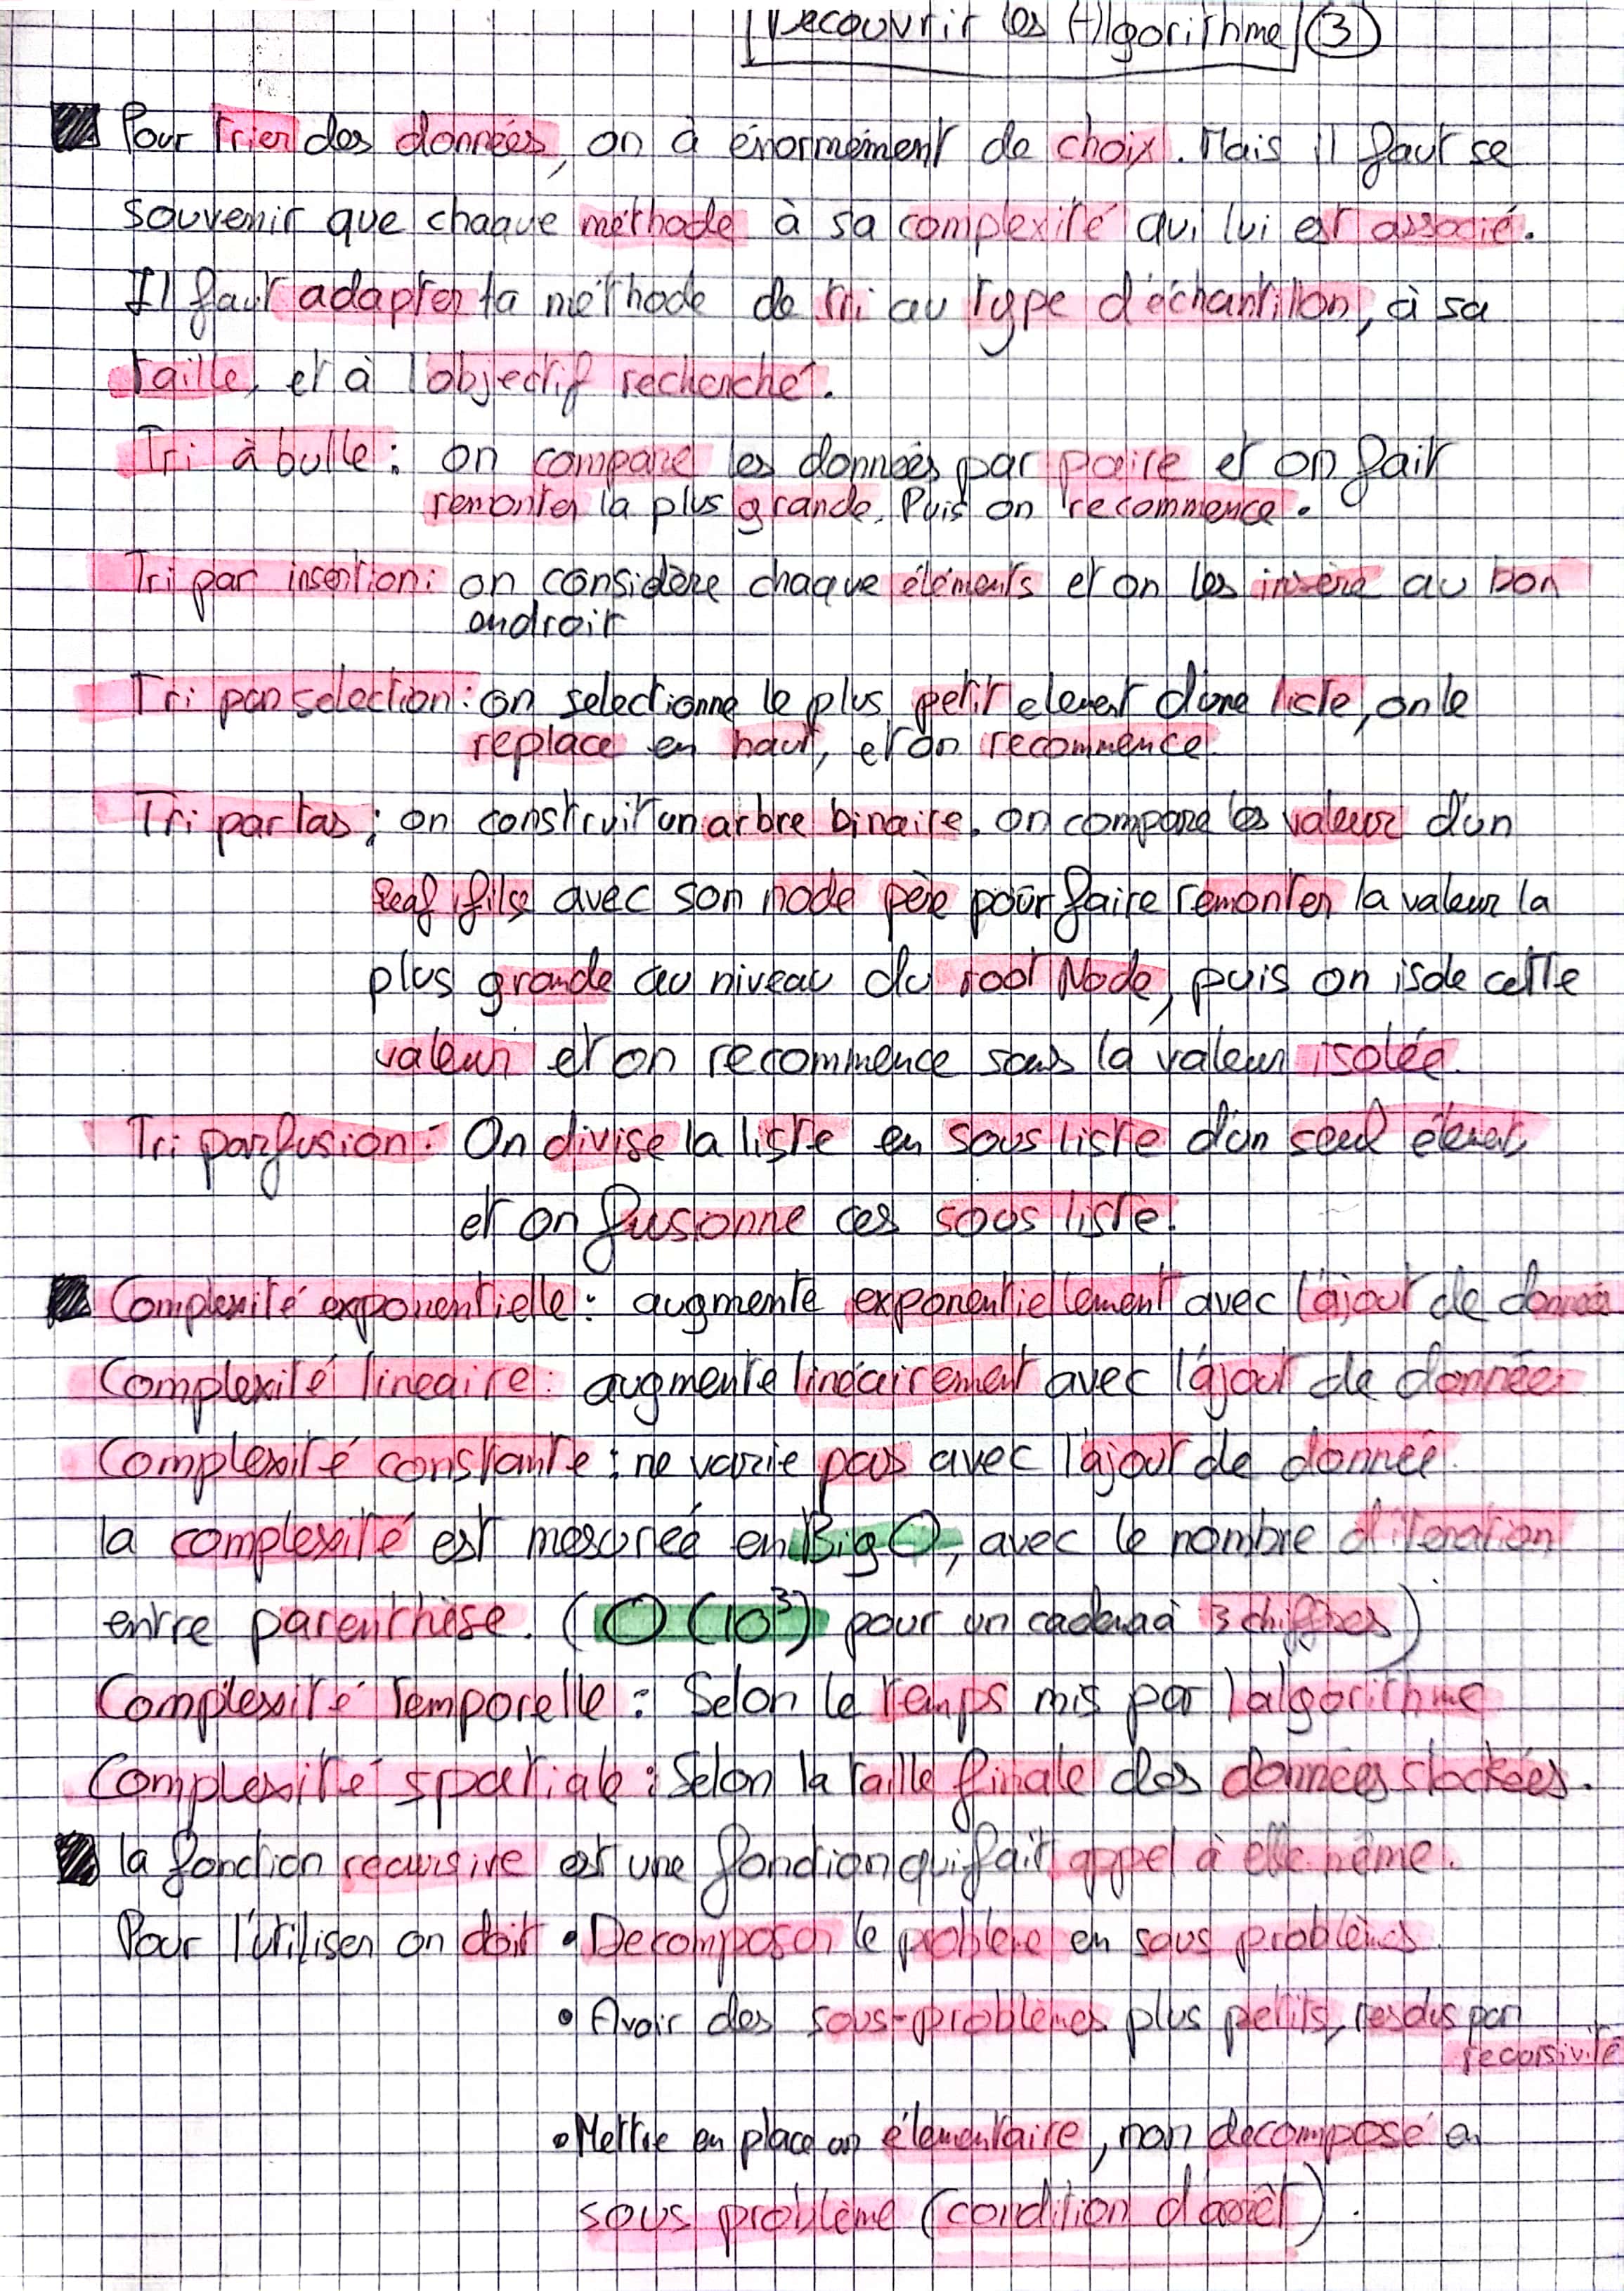 Decouvrir les Algorithme 3
Pour trier des données, on à énormément de choix. Mais il faut se
souvenir que chaque méthode à sa complexité qui lui est associé.
Il faut adapter ta méthode de tri au type d'échantillon, à sa
taille, et à l'objectif recherché.
Tri à bulle : on compare les données par paire et on fait
remonter la plus grande. Puis on recommence.
Tri par insertion : on considère chaque éléments et on les insère au bon
endroit
Tri par selection : on selectionne le plus petit element d'une liste, on le
replace en haut, et on recommence.
Tri par tas : on construit un arbre binaire. on compare les valeur d'un
leaf fils avec son node père pour faire remonter la valeur la
plus grande au niveau du root Node, puis on isole cette
valeur et on recommence sans la valeur isolée.
Tri par fusion : On divise la liste en sous liste d'un seul élement
et on fusionne ces sous liste.
Complexité exponentielle : augmente exponentiellement avec l'ajout de donnée
Complexité lineaire : augmente linéairement avec l'ajout de donnée
Complexité constante : ne varie pas avec l'ajout de donnée.
la complexité est mesurée en Big O, avec le nombre d'iteration
entre parenthèse. (O(10³) pour un cadena à 3 chiffres)
Complexité temporelle : Selon le temps mis par l'algorithme
Complexité spatiale : Selon la taille finale des données stockées.
la fonction recursive est une fonction qui fait appel à elle même.
Pour l'utiliser on doit • Decomposer le problème en sous problèmes.
• Avoir des sous-problèmes plus petits, resolus par
recursivité
• Mettre en place un élementaire, non decomposé en
sous problème (condition d'arrêt).